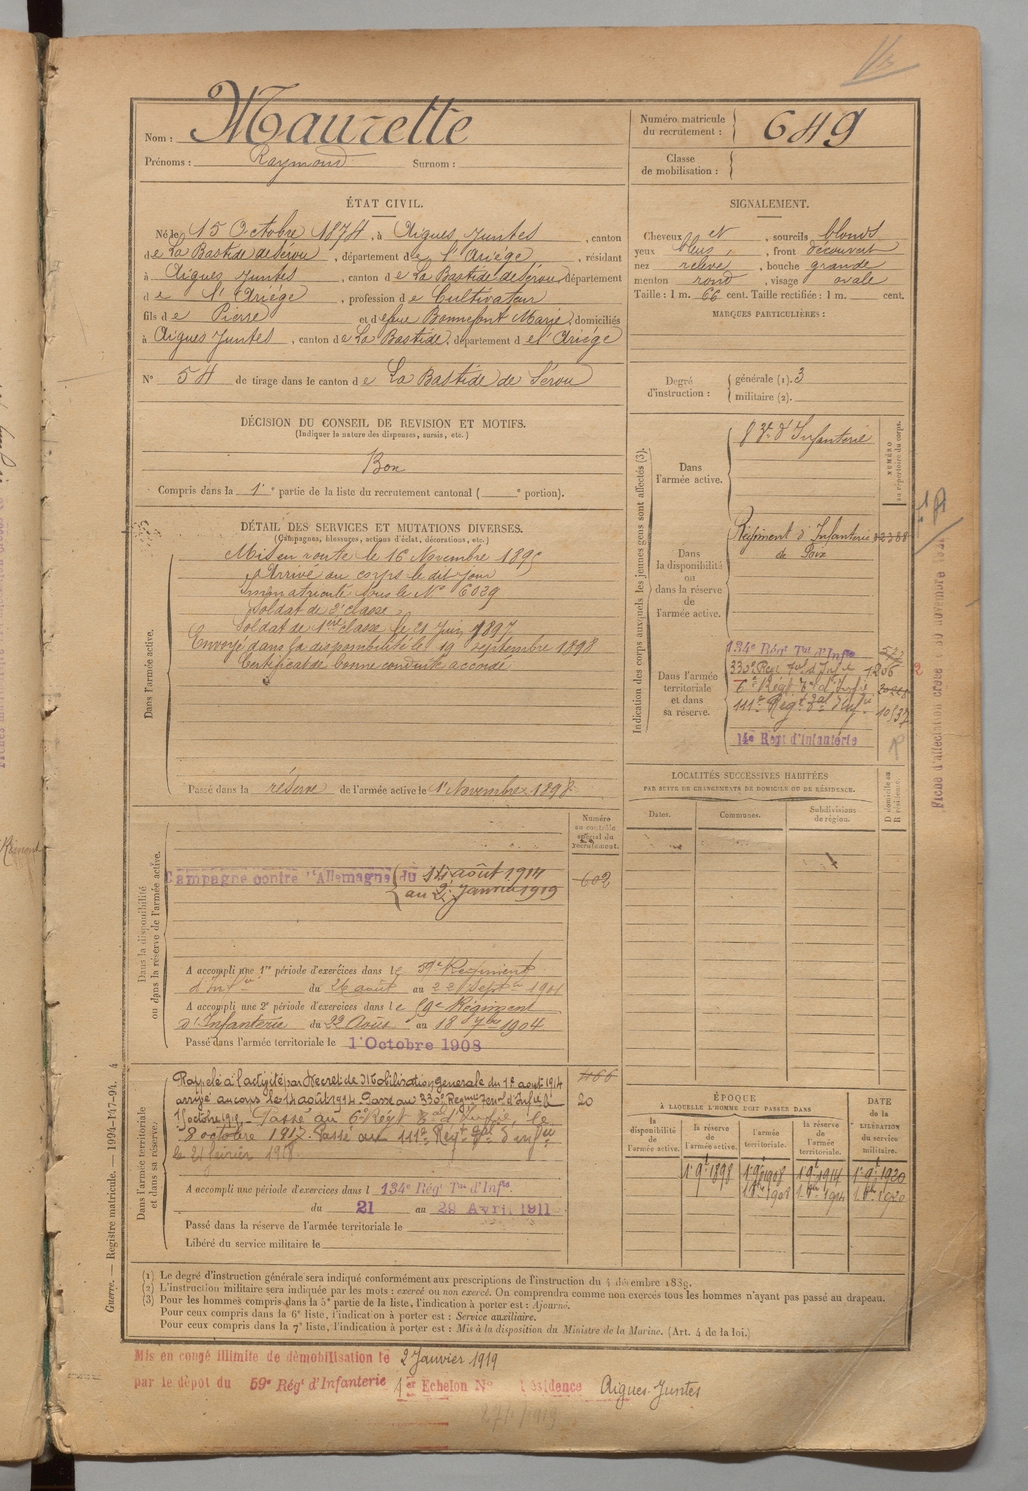 Nom : Maurette
Prénoms : Raymond Surnom :
Numéro matricule du recrutement : 649
Classe de mobilisation :
ÉTAT CIVIL.
Né le 15 Octobre 1874, à Aigues Juntes, canton
de La Bastide de Sérou, département de l'Ariège, résidant
à Aigues Juntes, canton de La Bastide de Sérou département
de l'Ariège, profession de Cultivateur
fils de Pierre et de feue Bonnefont Marie, domiciliés
à Aigues Juntes, canton de La Bastide, département de l'Ariège
N° 54 de tirage dans le canton de La Bastide de Sérou
SIGNALEMENT.
Cheveux et, sourcils blonds
yeux bleus, front découvert
nez relevé, bouche grande
menton rond, visage ovale
Taille : 1 m. 66 cent. Taille rectifiée : 1 m. cent.
MARQUES PARTICULIÈRES :
Degré d'instruction : générale (1). 3
militaire (2).
DÉCISION DU CONSEIL DE REVISION ET MOTIFS.
(Indiquer la nature des dispenses, sursis, etc.)
Bon
Compris dans la 1e partie de la liste du recrutement cantonal ( e portion).
DÉTAIL DES SERVICES ET MUTATIONS DIVERSES.
(Campagnes, blessures, actions d'éclat, décorations, etc.)
Dans l'armée active.
Mis en route le 16 Novembre 1895
Arrivé au corps le dit jour
immatriculé sous le N° 6029
Soldat de 2e classe
Soldat de 1ère classe le 21 Juin 1897
Envoyé dans la disponibilité le 19 septembre 1898
Certificat de bonne conduite accordé
Passé dans la réserve de l'armée active le 1er Novembre 1898
Indication des corps auxquels les jeunes gens sont affectés (3).
NUMÉRO au répertoire du corps.
Dans l'armée active.
83e d'Infanterie
Dans la disponibilité ou dans la réserve de l'armée active.
Régiment d'Infanterie
de Foix
Dans l'armée territoriale et dans sa réserve.
134e Rég. Tal d'Infie
330e Reg Tal d'Infie 1206
6e Régt Tal d'Infie
111e Regt Tal d'Infie 10137
14e Régt d'Infanterie
LOCALITÉS SUCCESSIVES HABITÉES
PAR SUITE DE CHANGEMENTS DE DOMICILE OU DE RÉSIDENCE.
Dates. Communes. Subdivisions de région. D domicile ou R résidence.
Dans la disponibilité ou dans la réserve de l'armée active.
Numéro au contrôle spécial du recrutement.
Campagne contre l'Allemagne du 14 août 1914
au 2 Janvier 1919
602
A accompli une 1re période d'exercices dans le 59e Régiment
d'Infie du 26 août au 22 Septe 1901
A accompli une 2e période d'exercices dans le 59e Régiment
d'Infanterie du 22 Août au 18 7bre 1904
Passé dans l'armée territoriale le 1er Octobre 1908
Dans l'armée territoriale et dans sa réserve.
Rappelé à l'activité par Décret de Mobilisation générale du 1er août 1914
arrivé au corps le 14 août 1914. Passé au 330e Regiment Terral d'Infie le
1er octobre 1917. Passé au 6e Régt Tal d'Infie, le
8 octobre 1917. Passé au 111e Regt Tal d'Infie
le 21 février 1918.
20
A accompli une période d'exercices dans l 134e Rég. Tal d'Infie.
du 21 au 29 Avril 1911
Passé dans la réserve de l'armée territoriale le
Libéré du service militaire le
ÉPOQUE
À LAQUELLE L'HOMME DOIT PASSER DANS
la disponibilité de l'armée active. la réserve de l'armée active. l'armée territoriale. la réserve de l'armée territoriale.
DATE de la LIBÉRATION du service militaire.
1er 9bre 1898 1er 9bre 1908 1er 9bre 1914 1er 9bre 1920
1er 8bre 1908 1er 8bre 1914 1er 8bre 1920
(1) Le degré d'instruction générale sera indiqué conformément aux prescriptions de l'instruction du 4 décembre 1889.
(2) L'instruction militaire sera indiquée par les mots : exercé ou non exercé. On comprendra comme non exercés tous les hommes n'ayant pas passé au drapeau.
(3) Pour les hommes compris dans la 5e partie de la liste, l'indication à porter est : Ajourné.
Pour ceux compris dans la 6e liste, l'indication à porter est : Service auxiliaire.
Pour ceux compris dans la 7e liste, l'indication à porter est : Mis à la disposition du Ministre de la Marine. (Art. 4 de la loi.)
Guerre. — Registre matricule. — 1994-147-94. 4
Mis en congé illimité de démobilisation le 2 Janvier 1919
par le dépôt du 59e Régt d'Infanterie 1er Echelon N° Résidence Aigues-Juntes